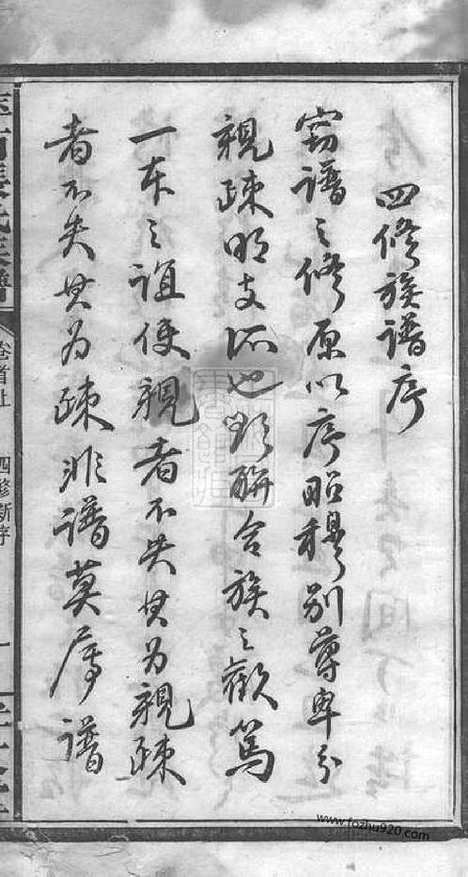 四修族譜序
窃譜之修原以序昭穆别尊卑分
親疎明支派也欲聯合族之歡篤
一本之誼使親者不失其为親疎
者不失其为疎非譜莫属譜
氏族譜
卷首
四修新序
一
www.fozhu920.com